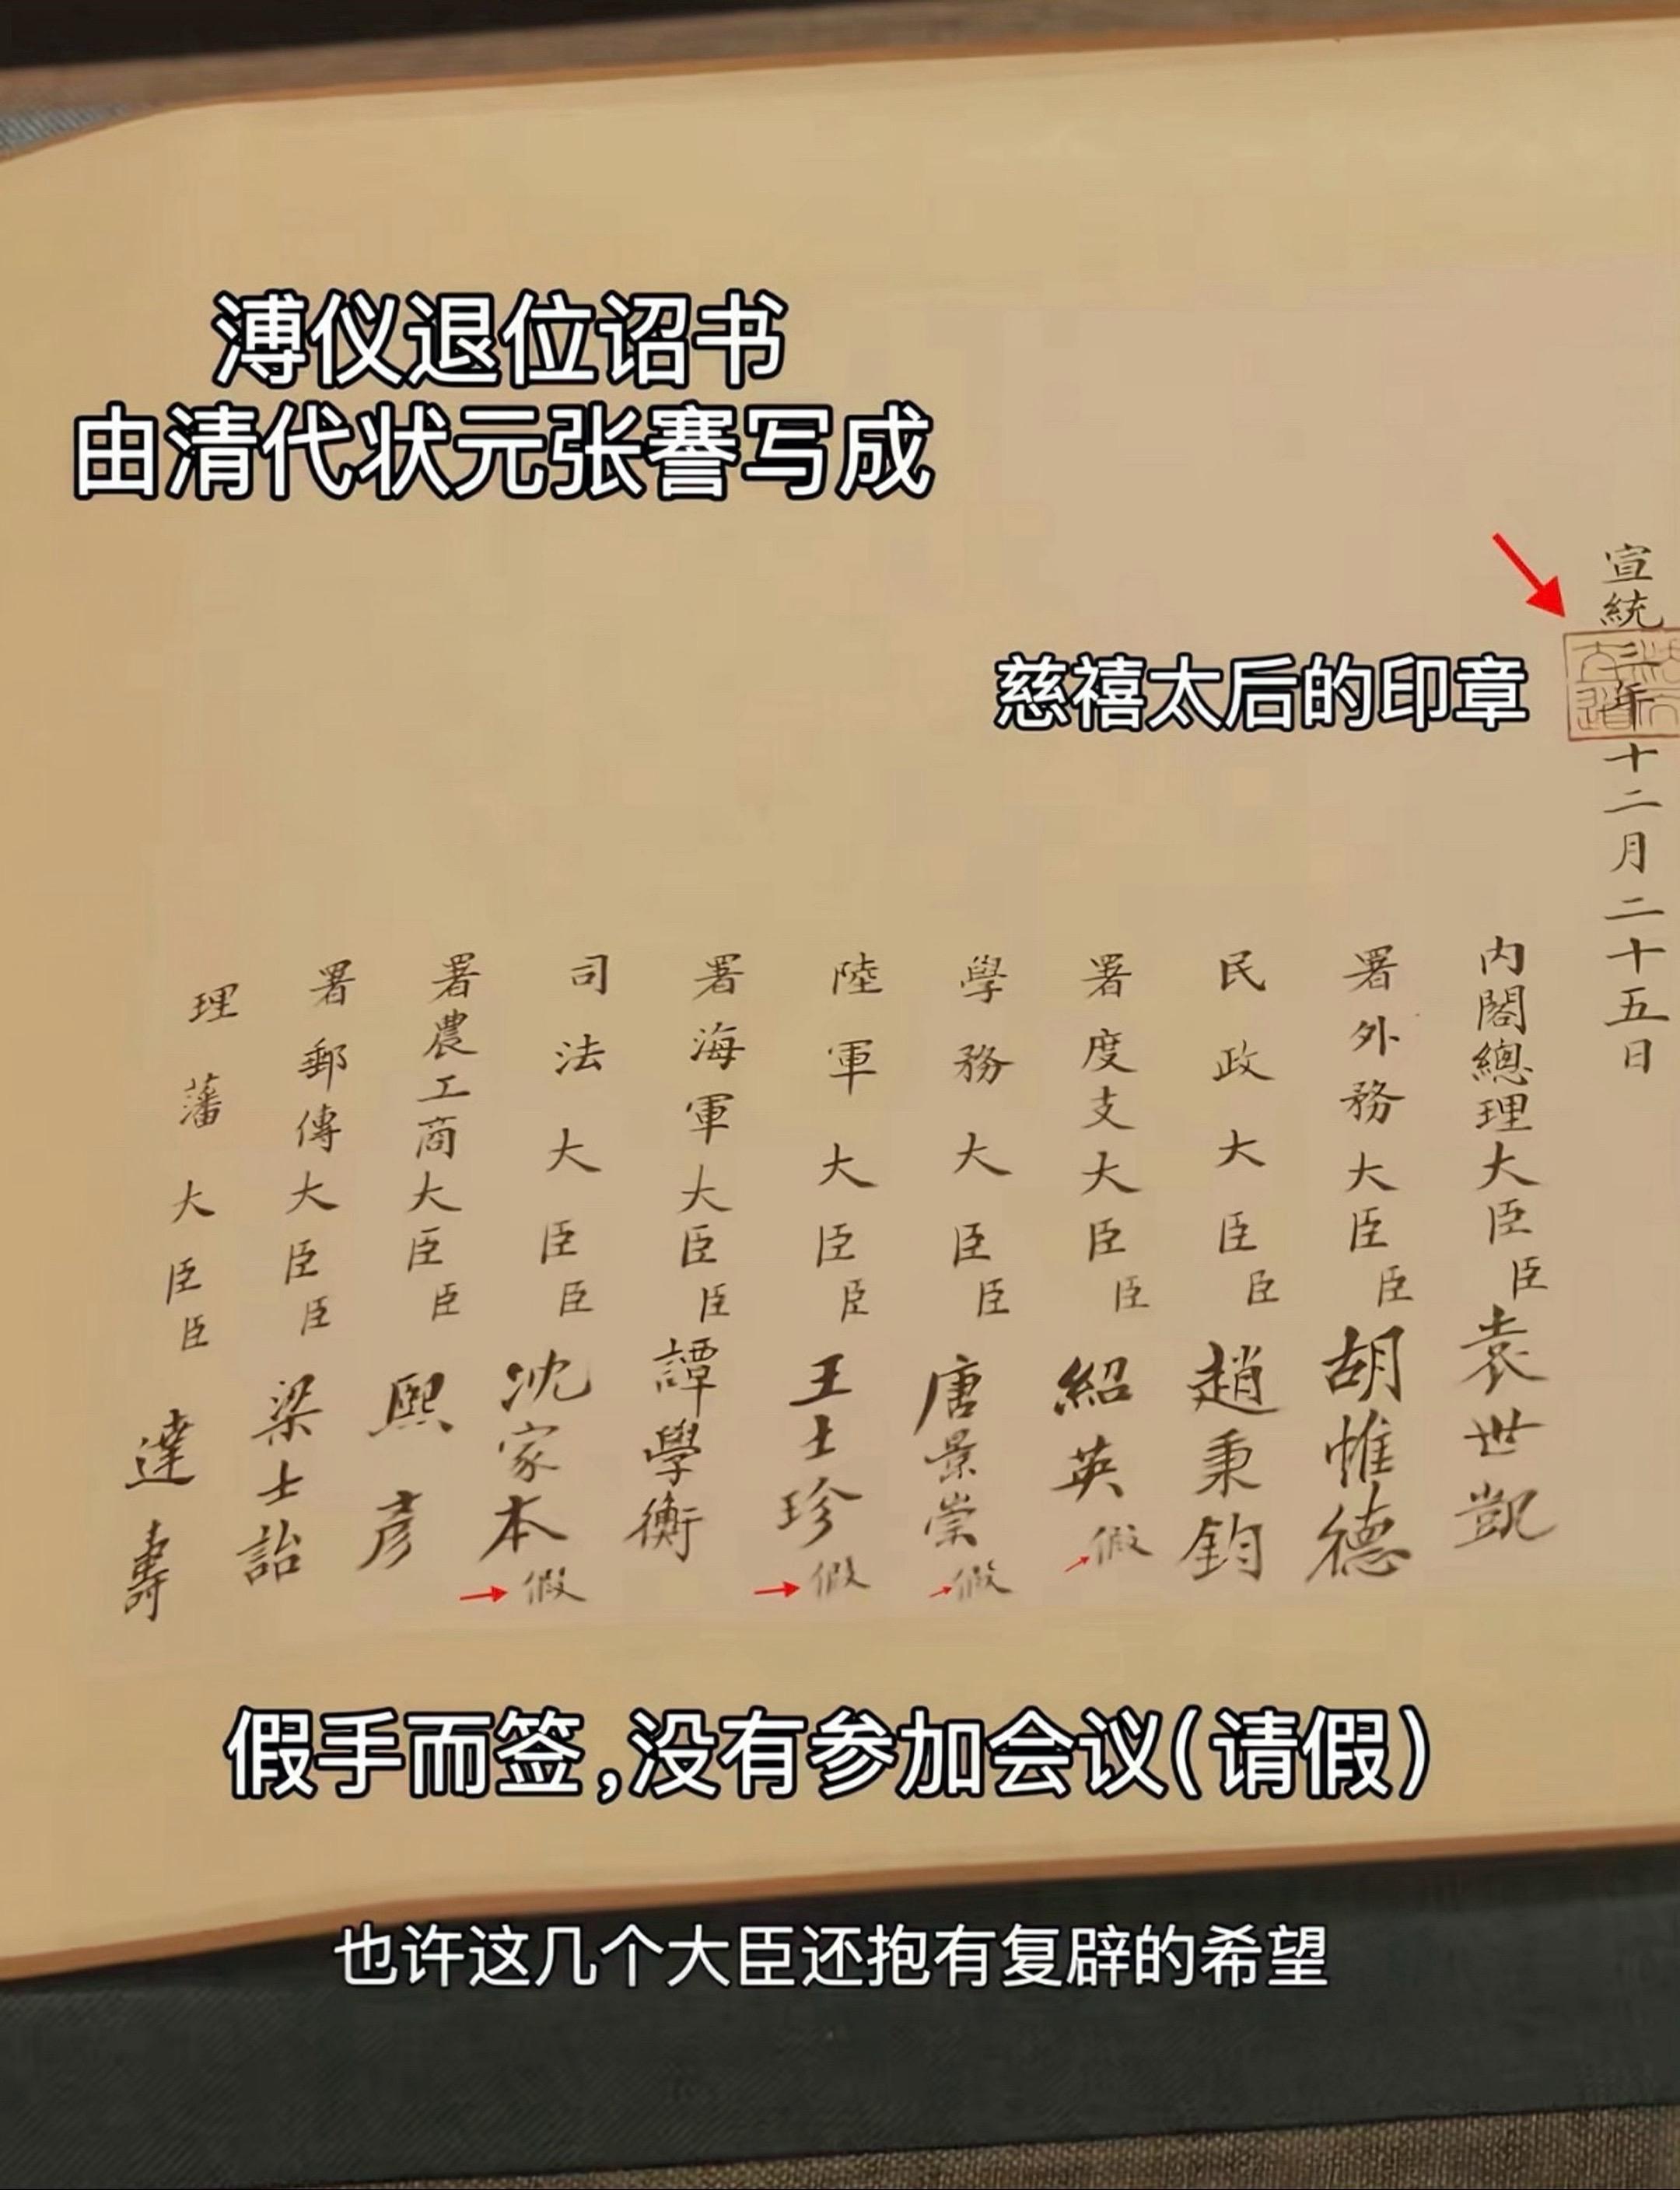 溥仪退位诏书
由清代状元张謇写成
慈禧太后的印章
宣統三年十二月二十五日
內閣總理大臣臣袁世凱
署外務大臣臣胡惟德
民政大臣臣趙秉鈞
署度支大臣臣紹英假
學務大臣臣唐景崇假
陸軍大臣臣王士珍假
署海軍大臣臣譚學衡
司法大臣臣沈家本假
署農工商大臣臣熙彥
署郵傳大臣臣梁士詒
理藩大臣臣達壽
假手而签,没有参加会议(请假)
也许这几个大臣还抱有复辟的希望